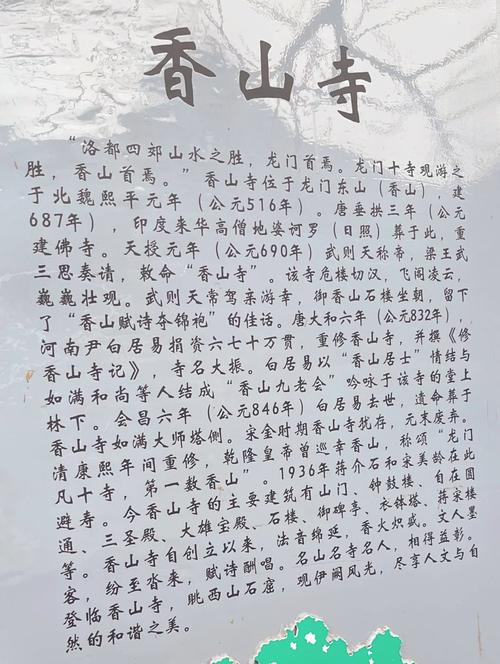 香山寺
“洛都四郊山水之胜，龙门首焉。龙门十寺观游之
胜，香山首焉。”香山寺位于龙门东山（香山），建
于北魏熙平元年（公元516年）。唐垂拱三年（公元
687年），印度来华高僧地婆诃罗（日照）葬于此，重
建佛寺。天授元年（公元690年）武则天称帝，梁王武
三思奏请，敕命“香山寺”。该寺危楼切汉，飞阁凌云，
巍巍壮观。武则天常驾亲游幸，御香山石楼坐朝，留下
了“香山赋诗夺锦袍”的佳话。唐大和六年（公元832年），
河南尹白居易捐资六七十万贯，重修香山寺，并撰《修
香山寺记》，寺名大振。白居易以“香山居士”情结与
如满和尚等人结成“香山九老会”吟咏于该寺的堂上
林下。会昌六年（公元846年）白居易去世，遗命葬于
香山寺如满大师塔侧。宋金时期香山寺犹存，元末废弃。
清康熙年间重修，乾隆皇帝曾巡幸香山，称颂“龙门
凡十寺，第一数香山”。1936年蒋介石和宋美龄在此
避寿。今香山寺的主要建筑有山门、钟鼓楼、自在圆
通、三圣殿、大雄宝殿、石楼、御碑亭、衣钵塔、蒋宋楼
等。香山寺自创立以来，法音绵延，香火炽盛。文人墨
客，纷至沓来，赋诗酬唱。名山名寺名人，相得益彰。
登临香山寺，眺西山石窟，现伊阙风光，尽享人文与自
然的和谐之美。